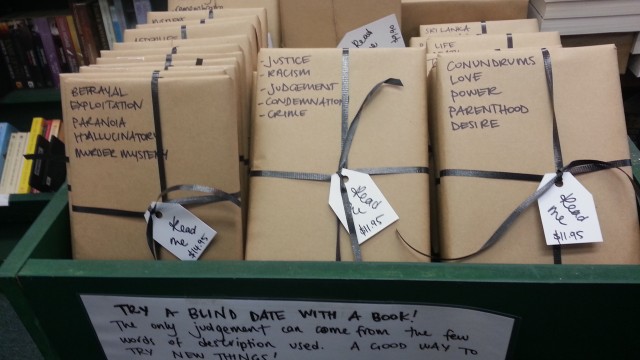 BETRAYAL
EXPLOITATION
PARANOIA
HALLUCINATORY
MURDER MYSTERY
Read
me
$14.95
- JUSTICE
RACISM
- JUDGEMENT
- CONDEMNATION
- CRIME
Read
me
$11.95
CONUNDRUMS
LOVE
POWER
PARENTHOOD
DESIRE
Read
me
$11.95
Read
me
SRI LANKA
LIFE
TRY A BLIND DATE WITH A BOOK!
The only judgement can come from the few
words of description used. A GOOD WAY TO
TRY NEW THINGS!